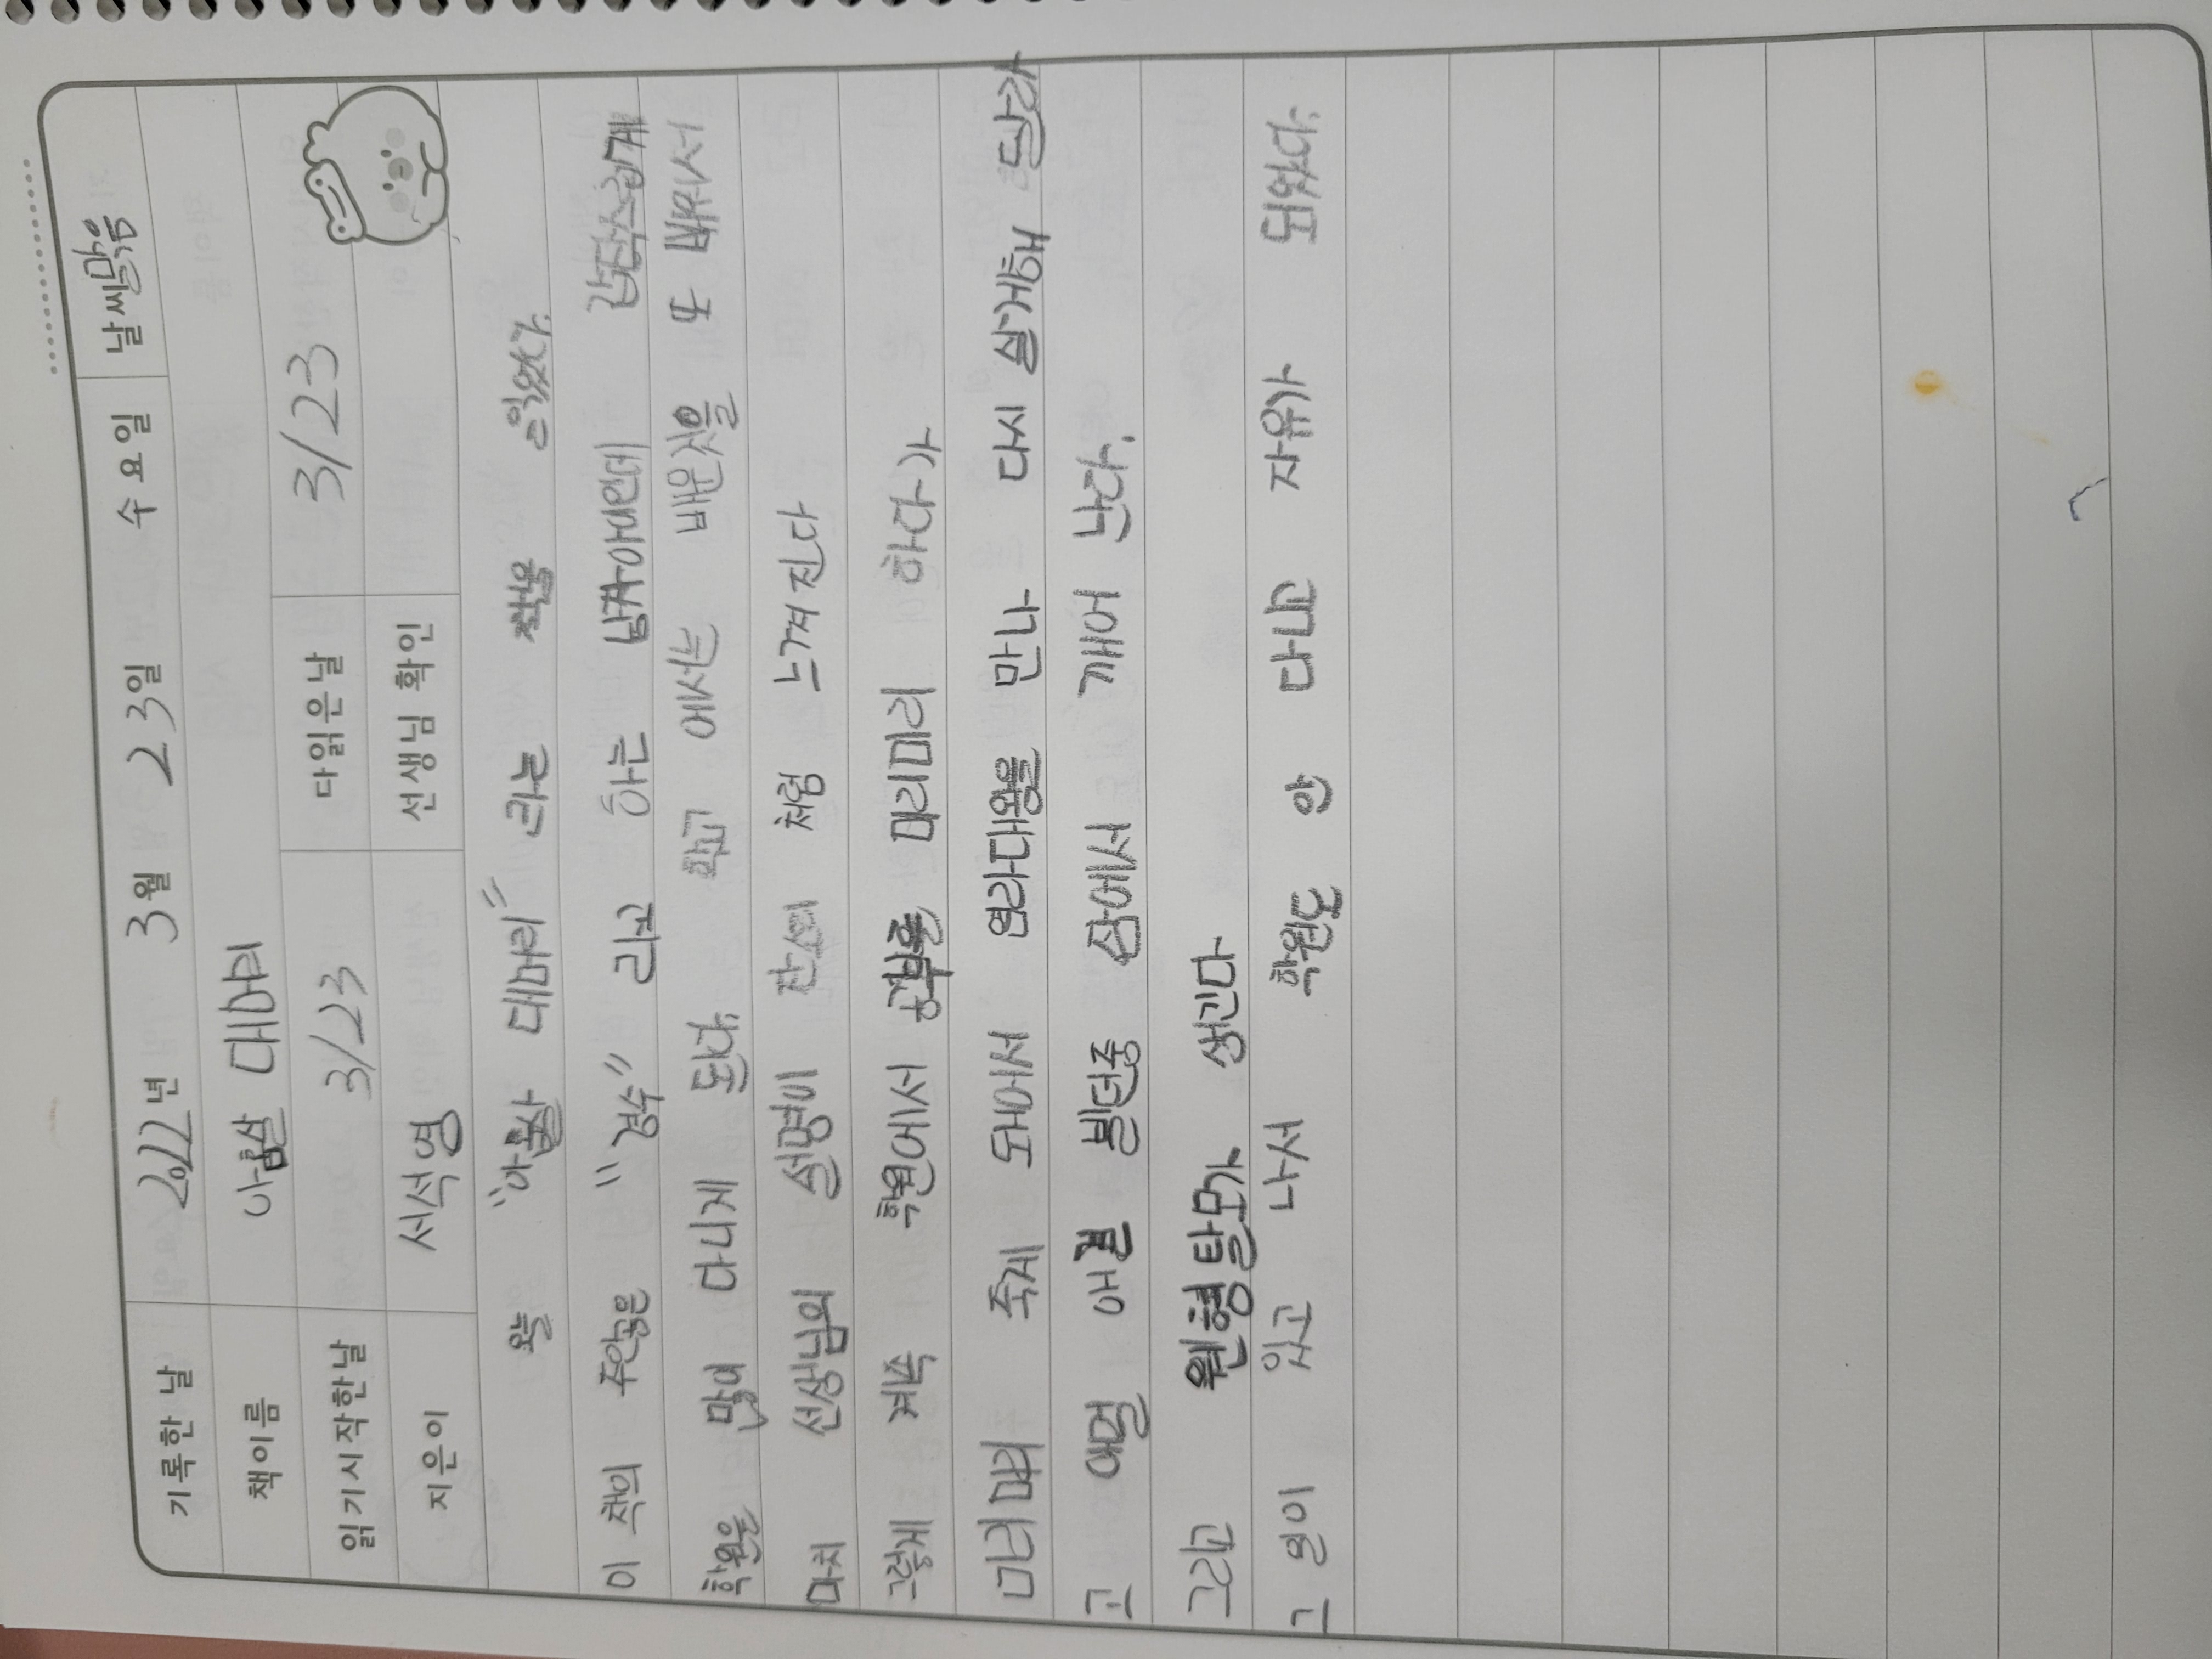 기록한 날 2022년 3월 23일 수요일 날씨 맑음
책이름 아홉살 대머리
읽기시작한날 3/23 다읽은날 3/23
지은이 서석영 선생님 확인
오늘 "아홉살 대머리" 라는 책을 읽었다.
이 책의 주인공은 "경수" 라고 하는 남자아이인데 갑작스럽게
학원을 많이 다니게 된다. 학교 에서는 배운것을 또 배워서
마치 선생님의 설명이 잔소리 처럼 느껴진다
그렇게 계속 학원에서 공부를 미리미리 하다가
미리미리 죽게 돼어서 연라대왕을 만나 다시 살게해 달라
고 애걸 애걸 빌던중 잠에서 깨어 난다.
그리고 원형탈모가 생긴다
그 일이 있고 나서 학원도 안 다니고 자유가 되었다.